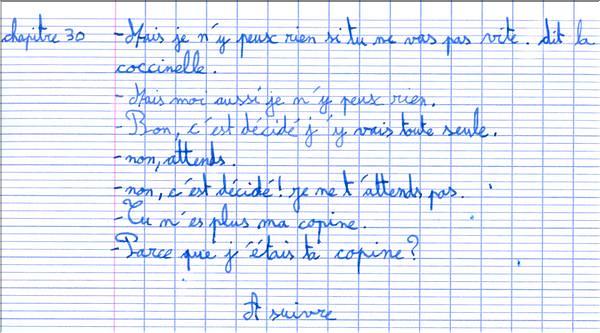 chapitre 30 - Mais je n'y peux rien si tu ne vas pas vite. dit la
coccinelle.
- Mais moi aussi je n'y peux rien.
- Bon, c'est décidé j'y vais toute seule.
- non, attends.
- non, c'est décidé! je ne t'attends pas.
- Tu n'es plus ma copine.
- Parce que j'étais ta copine?
A suivre